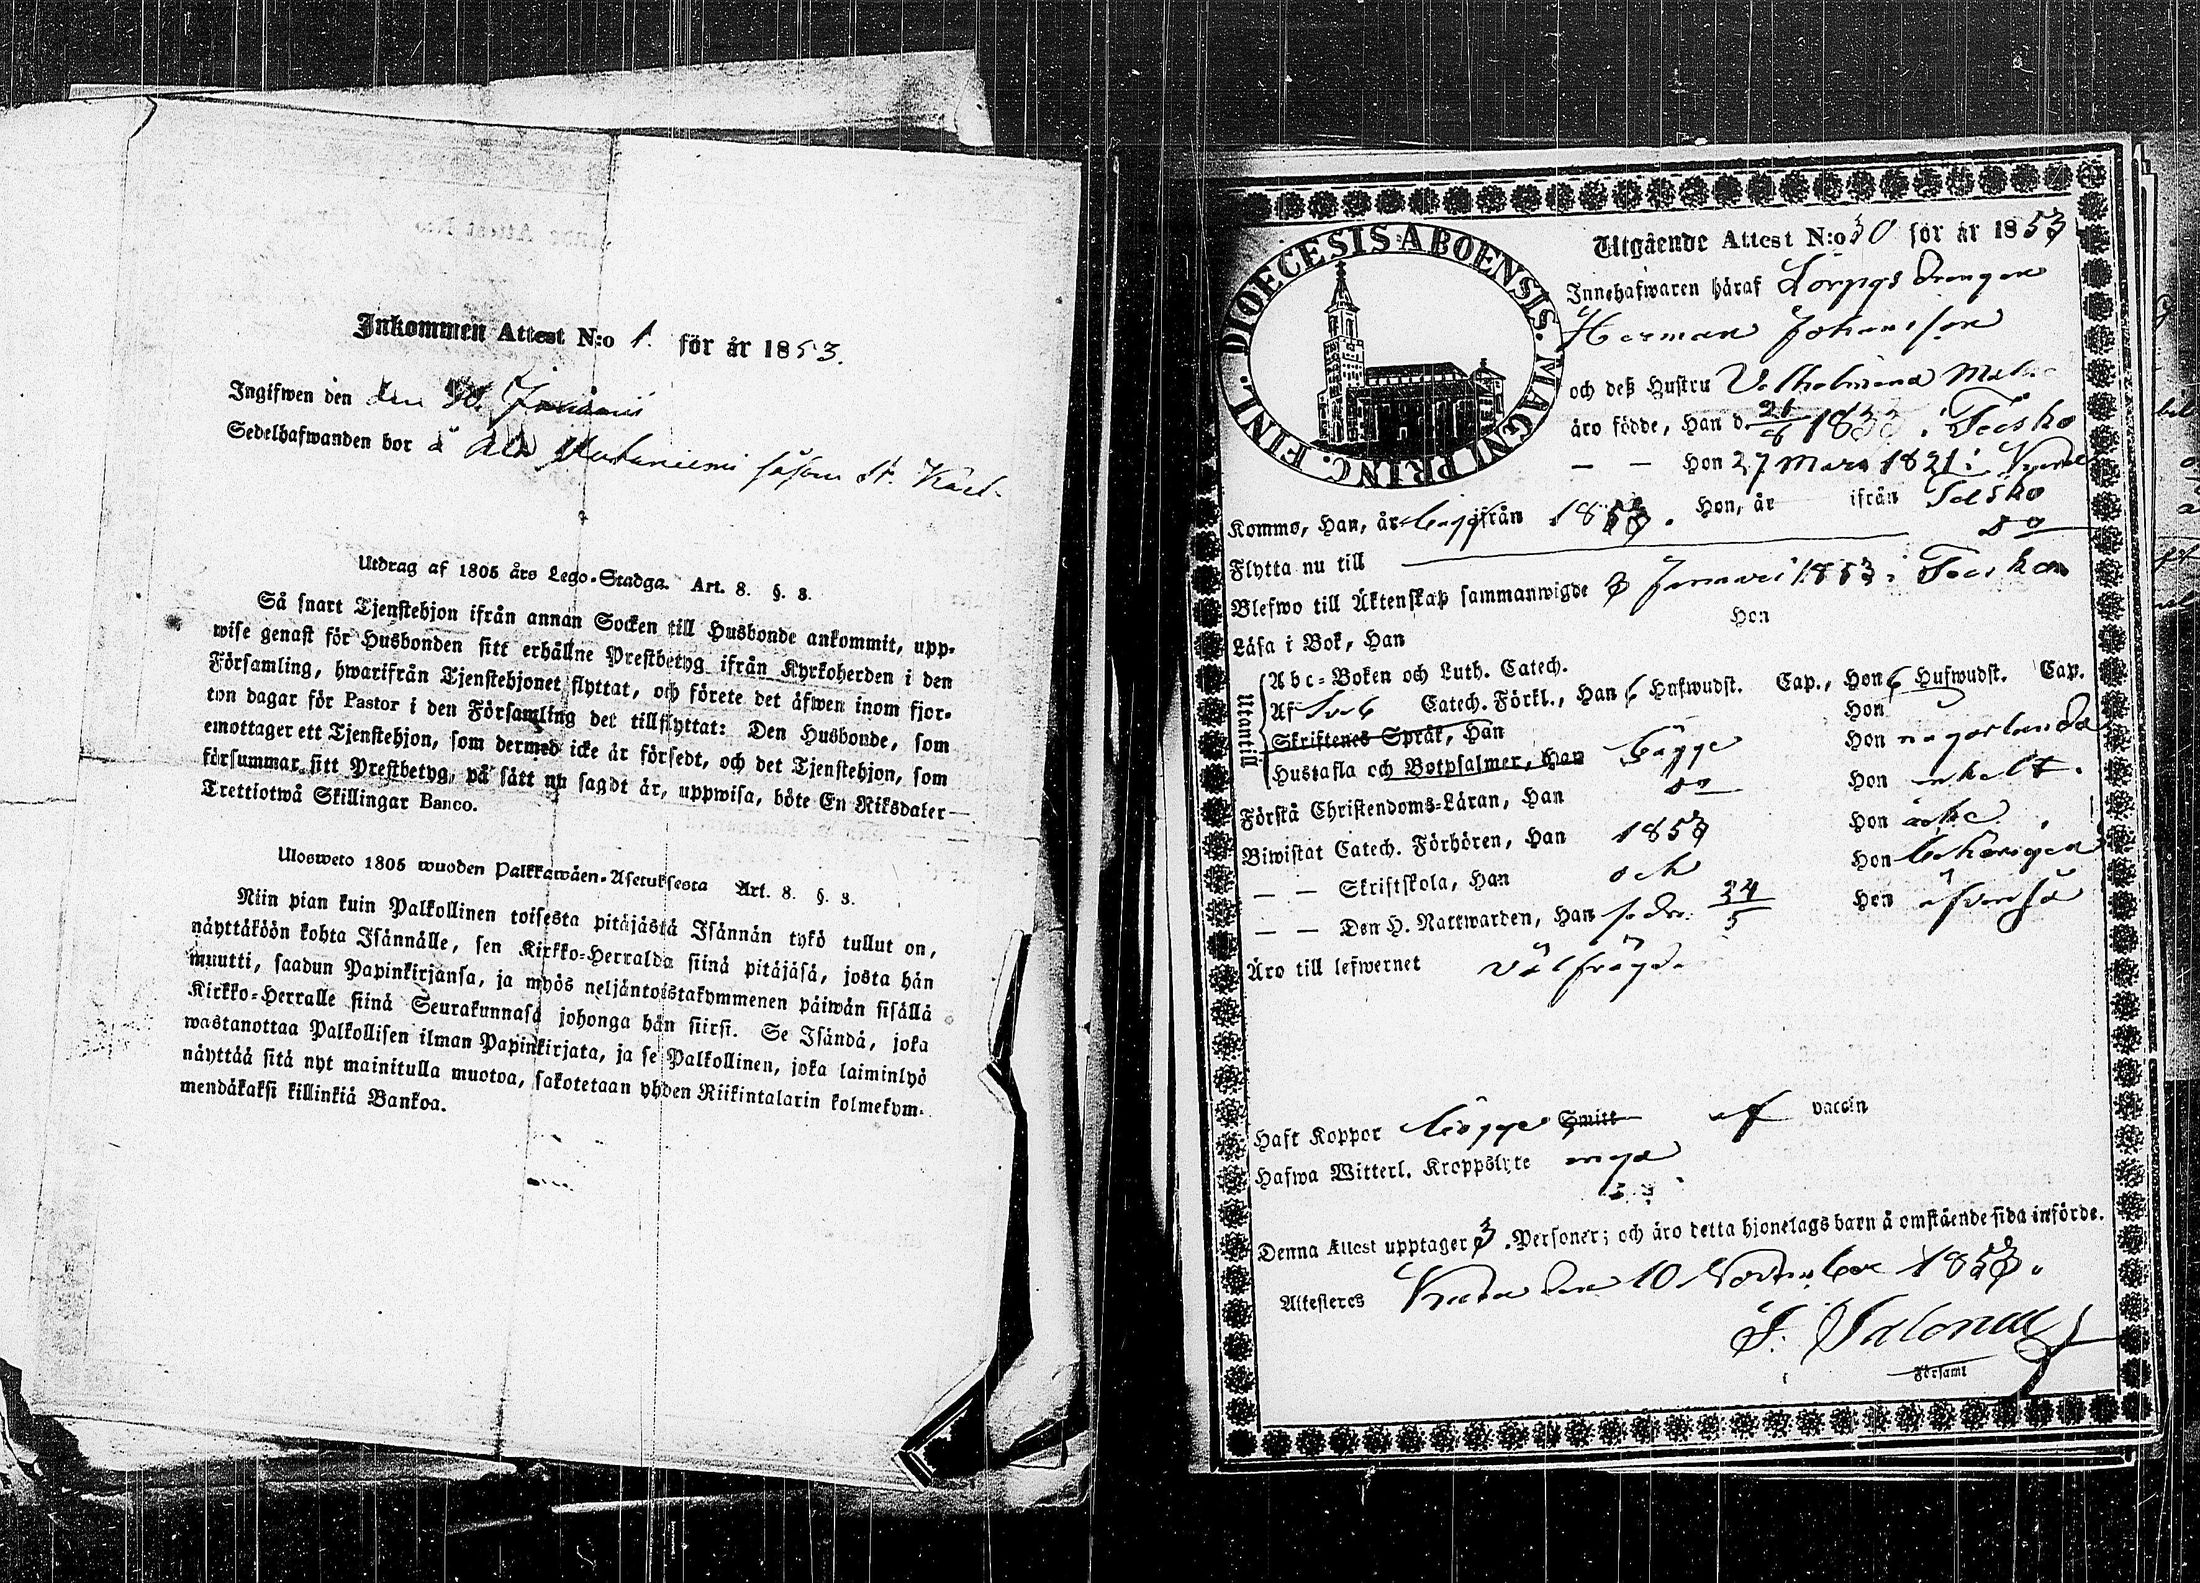 Inkommen Attest N:o 1. för år 1853.
Ingifwen den den
Sedelhafwanden bor å Ala såsom
Utdrag af 1805 års Lego-Stadga. Art. 8. §. 3.
Så snart Tjenstehjon ifrån annan Socken till Husbonde ankommit, upp-
wise genast för Husbonden sitt erhållne Prestbetyg ifrån Kyrkoherden i den
Församling, hwarifrån Tjenstehjonet flyttat, och förete det äfwen inom fjor-
ton dagar för Pastor i den Församling det tillflyttat: Den Husbonde, som
emottager ett Tjenstehjon, som dermed icke är försedt, och det Tjenstehjon, som
försummar sitt Prestbetyg, på sätt nu sagdt är, uppwisa, böte En Riksdaler
Trettiotwå Skillingar Banco.
Ulosweto 1805 wuoden Palkkawäen-Asetuksesta Art. 8. §. 3.
Niin pian kuin Palkollinen toisesta pitäjästä Isännän tykö tullut on,
näyttäköön kohta Isännälle, sen Kirkko-Herralda siinä pitäjäsä, josta hän
muutti, saadun Papinkirjansa, ja myös neljäntoistakymmenen päiwän sisällä
Kirkko-Herralle siinä Seurakunnasa johonga hän siirsi. Se Isändä, joka
wastanottaa Palkollisen ilman Papinkirjata, ja se Palkollinen, joka laiminlyö
näyttää sitä nyt mainitulla muotoa, sakotetaan yhden Riikintalarin kolmekym-
mendäkaksi killinkiä Bankoa.
DIOECESIS ABOENSIS. MAGNI PRINC. FINL.
Utgående Attest N:o 30 för år 1853
Innehafwaren häraf Torpgs Drengen
Herman Johansson
och deß Hustru
äro födde, Han d. 26/8 183 i Teisko
— — Hon 27 Mars 1821 i
Kommo, Han, år ifrån 1853. Hon, år ifrån Teisko
Flytta nu till do
Blefwo till Äktenskap sammanwigde Januari 1853 i Teisko
Läsa i Bok, Han Hon
Utantill
Abc-Boken och Luth. Catech.
Af Catech. Förkl., Han 6 Hufwudst. Cap., Hon 6 Hufwudst. Cap.
Skriftenes Språk, Han Hon
Hustafla och Botpsalmer, Han Begge Hon någorlunda
Förstå Christendoms-Läran, Han do Hon enkelt.
Biwistat Catech. Förhören, Han 1853 Hon
— — Skriftskola, Han och Hon behörigen
— — Den H. Nattwarden, Han 24/5 Hon äfvenså
Äro till lefwernet välfrägde
Haft Koppor Begge Smitt af vaccin
Hafwa Witterl. Kroppslyte inga
Denna Attest upptager 3. Personer; och äro detta hjonelags barn å omstående sida införde.
Attesteres den 10 November 1853.
Församl